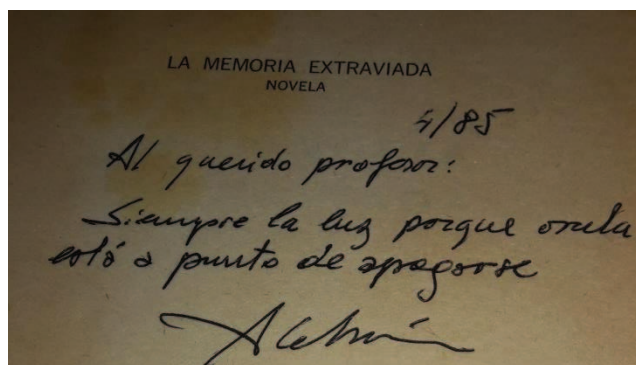 LA MEMORIA EXTRAVIADA
NOVELA
4/85
Al querido profesor:
Siempre la luz porque
está a punto de apagarse